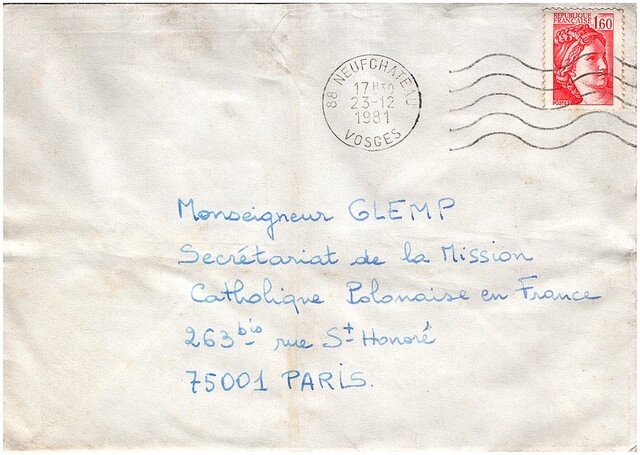 REPUBLIQUE
FRANÇAISE
1,60
88 NEUFCHATEAU
17H30
23-12
1981
VOSGES
Monseigneur GLEMP
Secrétariat de la Mission
Catholique Polonaise en France
263 bis rue St Honoré
75001 PARIS.